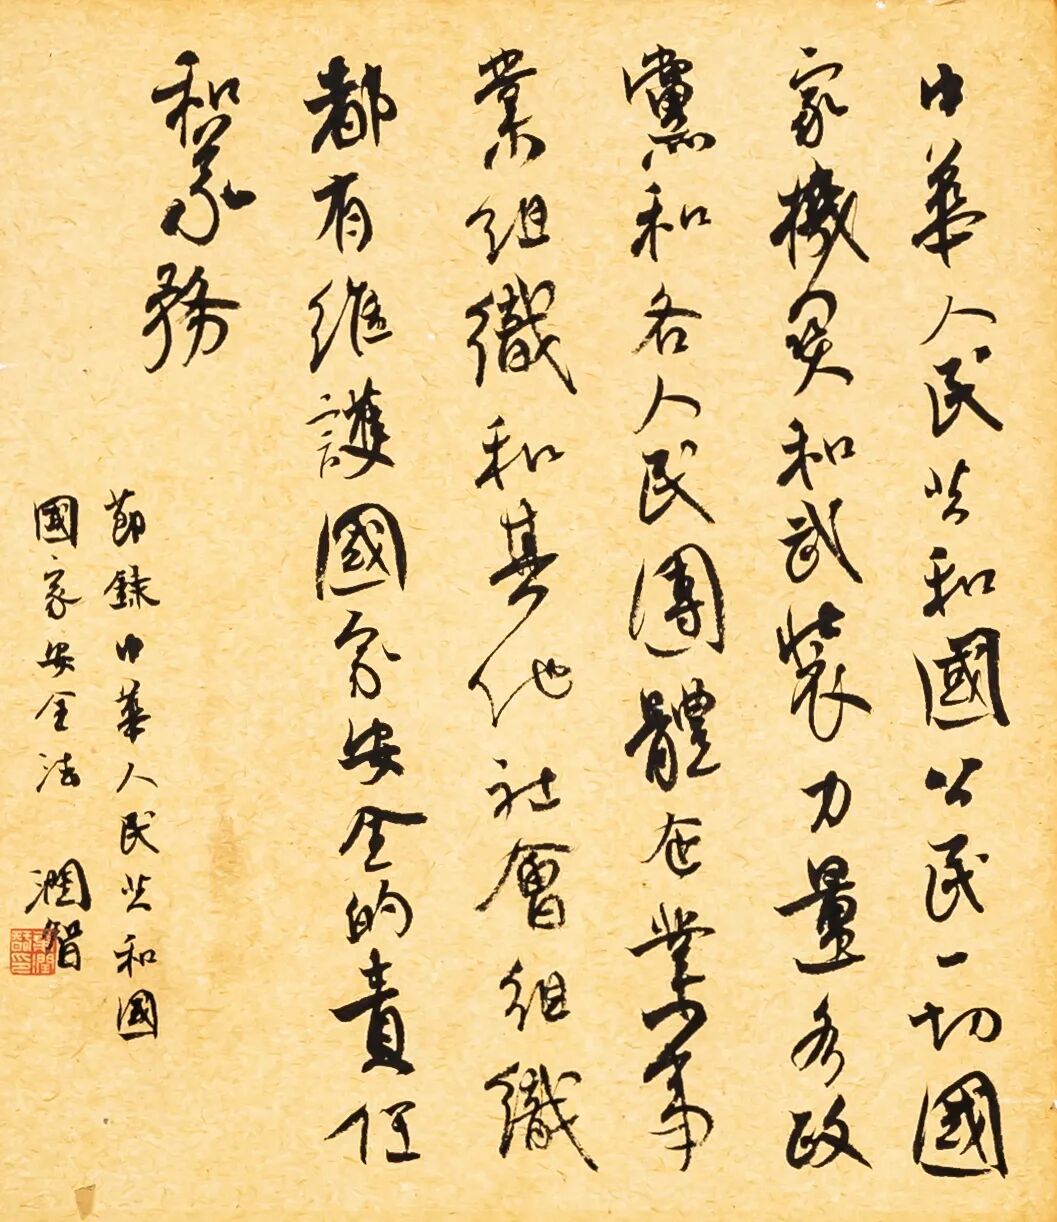 中華人民共和國公民一切國
家機關和武裝力量各政
黨和各人民團體企業事
業組織和其他社會組織
都有維護國家安全的責任
和義務
節錄中華人民共和國
國家安全法 潤智